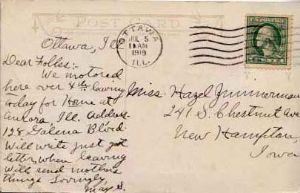 POST CARD
OTTAWA
JUL 5
11 AM
1919
ILL.
Ottawa, Ill
Dear Folks:-
We motored
here over 4th leaving
today for Home at
Aurora, Ill. Address
128 Galena Blvd.
Will write just got
letter when leaving
Will send mothers
things Lovingly
May G.
Miss Hazel Zimmerman
241 S. Chestnut Ave
New Hampton,
Iowa